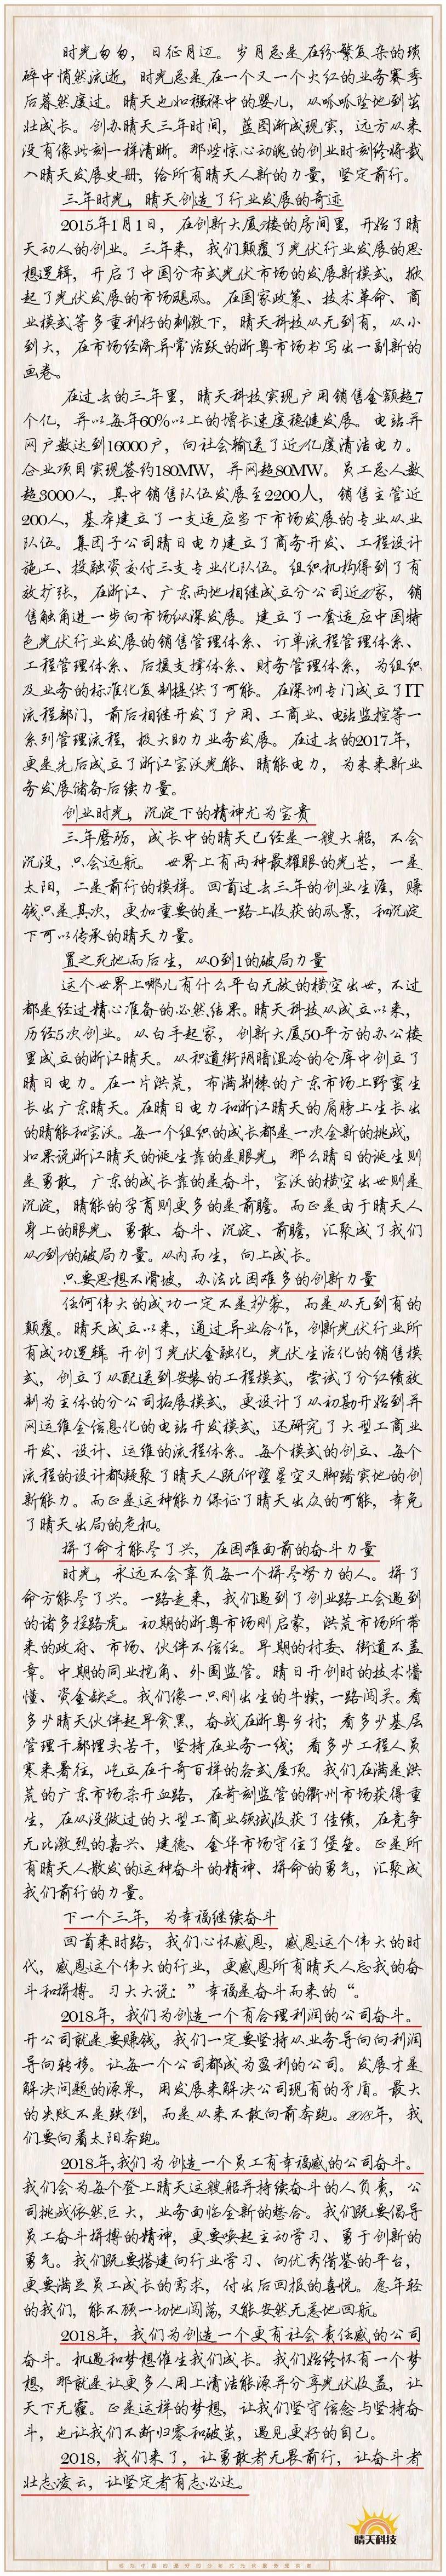 时光匆匆，日征月迈。岁月总是在纷繁复杂的琐
碎中悄然流逝，时光总是在一个又一个火红的业务赛季
后蓦然度过。晴天也如襁褓中的婴儿，从呱呱坠地到茁
壮成长。创办晴天三年时间，蓝图渐成现实，远方从来
没有像此刻一样清晰。那些惊心动魄的创业时刻终将载
入晴天发展史册，给所有晴天人新的力量，坚定前行。
三年时光，晴天创造了行业发展的奇迹
2015年1月1日，在创新大厦7楼的房间里，开始了晴
天动人的创业。三年来，我们颠覆了光伏行业发展的思
想逻辑，开启了中国分布式光伏市场的发展新模式，掀
起了光伏发展的市场飓风。在国家政策、技术革命、商
业模式等多重利好的刺激下，晴天科技从无到有，从小
到大，在市场经济异常活跃的浙粤市场书写出一副新的
画卷。
在过去的三年里，晴天科技实现户用销售金额超7
个亿，并以每年60%以上的增长速度稳健发展。电站并
网户数达到16000户，向社会输送了近1亿度清洁电力。
企业项目实现签约180MW，并网超80MW。员工总人数
超3000人，其中销售队伍发展至2200人，销售主管近
200人，基本建立了一支适应当下市场发展的专业从业
队伍。集团子公司晴日电力建立了商务开发、工程设计
施工、投融资交付三支专业化队伍。组织机构得到了有
效扩张，在浙江、广东两地相继成立分公司近10家，销
售触角进一步向市场纵深发展。建立了一套适应中国特
色光伏行业发展的销售管理体系、订单流程管理体系、
工程管理体系、后援支撑体系、财务管理体系，为组织
及业务的标准化复制提供了可能。在深圳专门成立了IT
流程部门，前后相继开发了户用、工商业、电站监控等一
系列管理流程，极大助力业务发展。在过去的2017年，
更是先后成立了浙江宝沃光能、晴能电力，为未来新业
务发展储备后续力量。
创业时光，沉淀下的精神尤为宝贵
三年磨砺，成长中的晴天已经是一艘大船，不会
沉没，只会远航。 世界上有两种最耀眼的光芒，一是
太阳，二是前行的模样。回首过去三年的创业生涯，赚
钱只是其次，更加重要的是一路上收获的风景，和沉淀
下可以传承的晴天力量。
置之死地而后生，从0到1的破局力量
这个世界上哪儿有什么平白无故的横空出世，不过
都是经过精心准备的必然结果。晴天科技从成立以来，
历经5次创业。从白手起家，创新大厦50平方的办公楼
里成立的浙江晴天。从积道街阴暗湿冷的仓库中创立了
晴日电力。在一片洪荒，布满荆棘的广东市场上野蛮生
长出广东晴天。在晴日电力和浙江晴天的肩膀上生长出
的晴能和宝沃。每一个组织的成长都是一次全新的挑战，
如果说浙江晴天的诞生靠的是眼光，那么晴日的诞生则
是勇敢，广东的成长靠的是奋斗，宝沃的横空出世则是
沉淀，晴能的孕育则更多的是前瞻。而正是由于晴天人
身上的眼光、勇敢、奋斗、沉淀、前瞻，汇聚成了我们
从0到1的破局力量。从内而生，向上成长。
只要思想不滑坡，办法比困难多的创新力量
任何伟大的成功一定不是抄袭，而是从无到有的
颠覆。晴天成立以来，通过异业合作，创新光伏行业所
有成功逻辑。开创了光伏金融化，光伏生活化的销售模
式，创立了从配送到安装的工程模式，尝试了分红绩效
制为主体的分公司拓展模式，更设计了从初勘开始到并
网运维全信息化的电站开发模式，还研究了大型工商业
开发、设计、运维的流程体系。每个模式的创立、每个
流程的设计都凝聚了晴天人既仰望星空又脚踏实地的创
新能力。而正是这种能力保证了晴天出众的可能，幸免
了晴天出局的危机。
拼了命才能尽了兴，在困难面前的奋斗力量
时光，永远不会辜负每一个拼尽努力的人。拼了
命方能尽了兴。一路走来，我们遇到了创业路上会遇到
的诸多拦路虎。初期的浙粤市场刚启蒙，洪荒市场所带
来的政府、市场、伙伴不信任。早期的村委、街道不盖
章。中期的同业挖角、外围监管。晴日开创时的技术懵
懂、资金缺乏。我们像一只刚出生的牛犊，一路闯关。看
多少晴天伙伴起早贪黑，奋战在浙粤乡村；看多少基层
管理干部埋头苦干，坚持在业务一线；看多少工程人员
寒来暑往，屹立在千奇百样的各式屋顶。我们在满是洪
荒的广东市场杀开血路，在苛刻监管的衢州市场获得重
生，在从没做过的大型工商业领域收获了佳绩，在竞争
无比激烈的嘉兴、建德、金华市场守住了堡垒。正是所
有晴天人散发的这种奋斗的精神、拼命的勇气，汇聚成
我们前行的力量。
下一个三年，为幸福继续奋斗
回首来时路，我们心怀感恩，感恩这个伟大的时
代，感恩这个伟大的行业，更感恩所有晴天人忘我的奋
斗和拼搏。习大大说：”幸福是奋斗而来的“。
2018年，我们为创造一个有合理利润的公司奋斗。
开公司就是要赚钱，我们一定要坚持从业务导向向利润
导向转移。让每一个公司都成为盈利的公司。发展才是
解决问题的源泉，用发展来解决公司现有的矛盾。最大
的失败不是跌倒，而是从来不敢向前奔跑。2018年，我
们要向着太阳奔跑。
2018年，我们为创造一个员工有幸福感的公司奋斗。
我们会为每个登上晴天这艘船并持续奋斗的人负责，公
司挑战依然巨大，业务面临全新的整合。我们既要倡导
员工奋斗拼搏的精神，更要唤起主动学习、勇于创新的
勇气。我们既要搭建向行业学习、向优秀借鉴的平台，
更要满足员工成长的需求，付出后回报的喜悦。愿年轻
的我们，能不顾一切地闯荡，又能安然无恙地回航。
2018年，我们为创造一个更有社会责任感的公司
奋斗。机遇和梦想催生我们成长。我们始终怀有一个梦
想，那就是让更多人用上清洁能源并分享光伏收益，让
天下无霾。正是这样的梦想，让我们坚守信念与坚持奋
斗，也让我们不断归零和破茧，遇见更好的自己。
2018，我们来了，让勇敢者无畏前行，让奋斗者
壮志凌云，让坚定者有志必达。
晴天科技